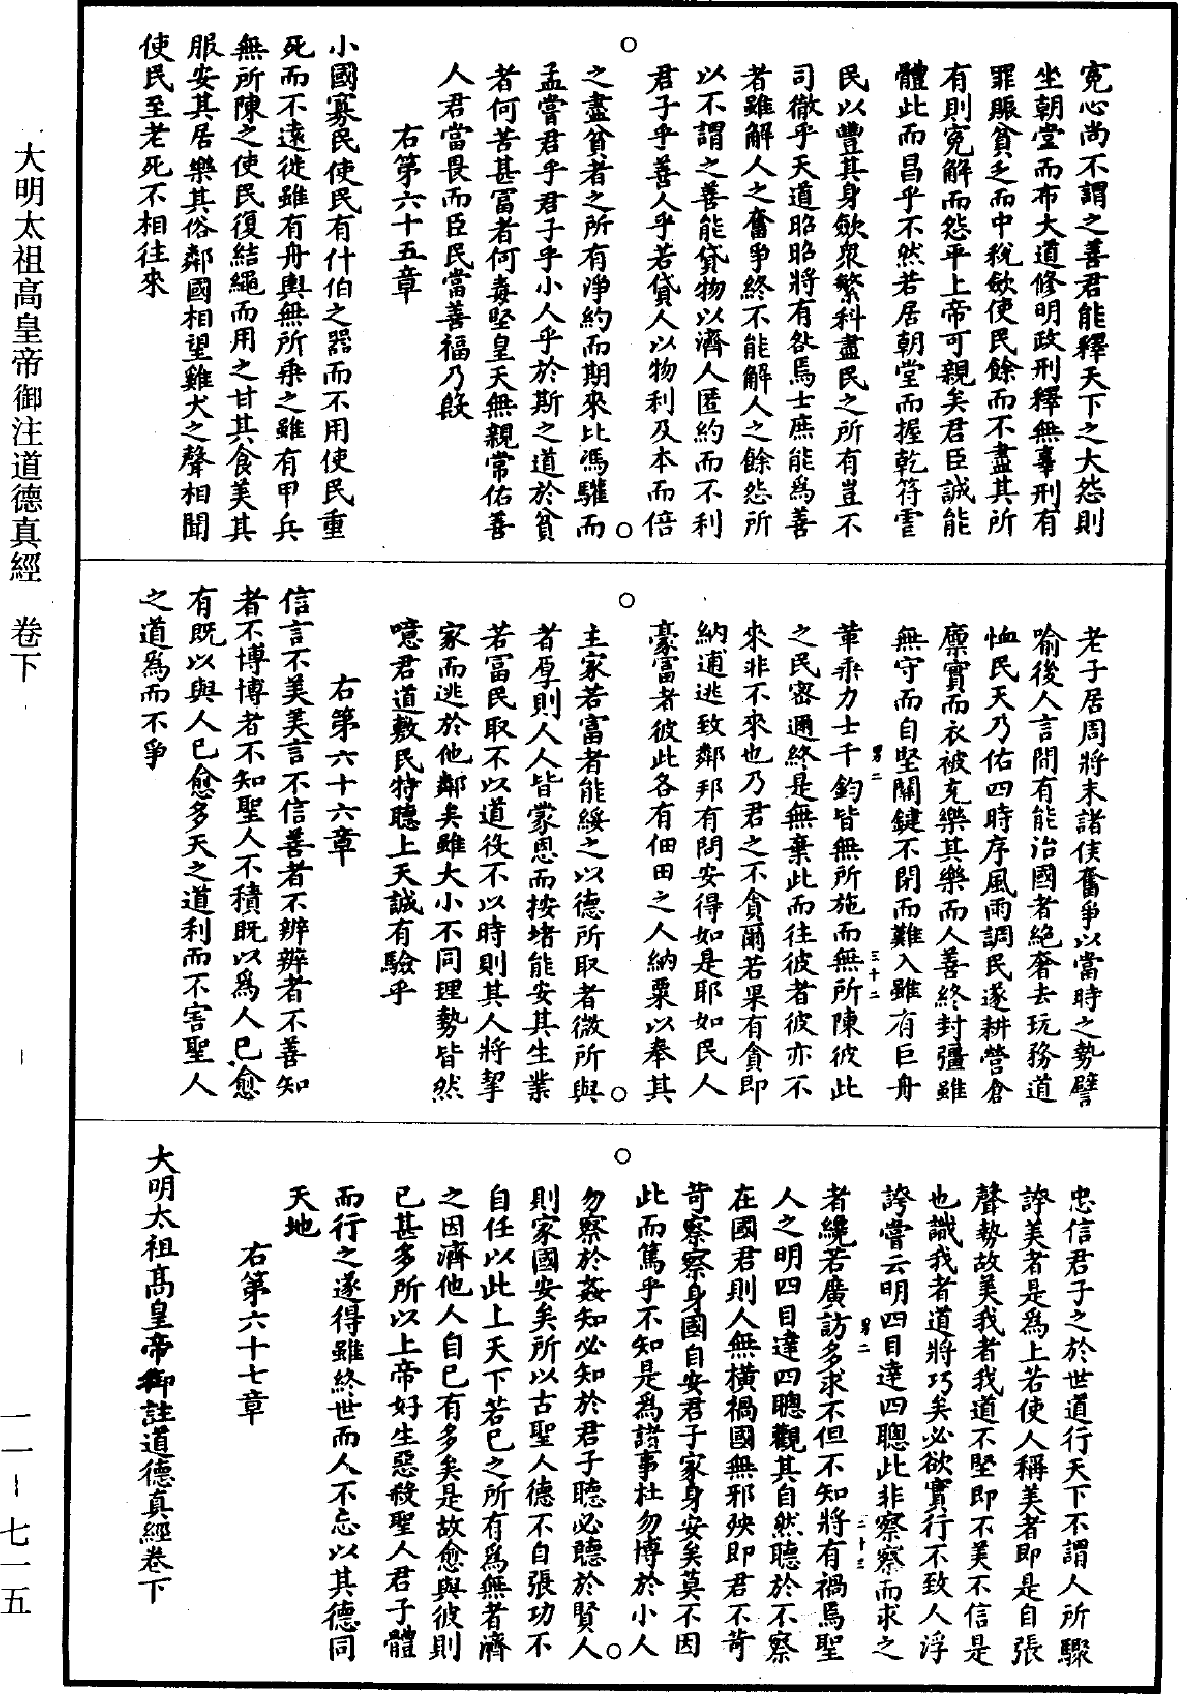 寃心尚不謂之善君能釋天下之大怨則
坐朝堂而布大道修明政刑釋無辜刑有
罪賑貧乏而中稅歛使民餘而不盡其所
有則寃解而怨平上帝可親矣君臣誠能
體此而昌乎不然若居朝堂而握乾符
民以豐其身歛衆繁科盡民之所有豈不
司徹乎天道昭昭將有咎焉士庶能爲善
者雖解人之奮爭終不能解人之餘怨所
以不謂之善能貸物以濟人匿約而不利
君子乎善人乎若貸人以物利及本而倍
之盡貧者之所有淨約而期來比馮驩而
孟嘗君乎君子乎小人乎於斯之道於貧
者何苦甚冨者何毒堅皇天無親常佑善
人君當畏而臣民當善福乃殷
右第六十五章
小國寡民使民有什伯之器而不用使民重
死而不遠徙雖有舟輿無所乗之雖有甲兵
無所陳之使民復結繩而用之甘其食美其
服安其居樂其俗鄰國相望雞犬之聲相聞
使民至老死不相往來
老子居周將末諸侯奮爭以當時之勢譬
喻後人言間有能治國者絶奢去玩務道
恤民天乃佑四時序風雨調民遂耕營倉
廪實而衣被充樂其樂而人善終封疆雖
無守而自堅關鍵不閉而難入雖有巨舟
男二 三十二
革乗力士千鈞皆無所施而無所陳彼此
之民密邇終是無棄此而往彼者彼亦不
來非不來也乃君之不貪爾若果有貪即
納逋逃致鄰邦有問安得如是耶如民人
豪富者彼此各有佃田之人納粟以奉其
主家若富者能綏之以德所取者微所與
者厚則人人皆蒙恩而按堵能安其生業
若冨民取不以道役不以時則其人將挈
家而逃於他鄰矣雖大小不同理勢皆然
噫君道敷民特聽上天誠有驗乎
右第六十六章
信言不美美言不信善者不辨辨者不善知
者不博博者不知聖人不積既以爲人已愈
有既以與人已愈多天之道利而不害聖人
之道爲而不爭
忠信君子之於世道行天下不謂人所驟
誇美者是爲上若使人稱美者即是自張
聲勢故美我者我道不堅即不美不信是
也識我者道將巧矣必欲實行不致人浮
誇嘗云明四目達四聰此非察察而求之
男二 三十三
者纔若廣訪多求不但不知將有禍焉聖
人之明四目達四聰觀其自然聽於不察
在國君則人無橫禍國無邪殃即君不苛
苛察察身國自安君子家身安矣莫不因
此而篤乎不知是爲諸事杜勿博於小人
勿察於姦知必知於君子聽必聽於賢人
則家國安矣所以古聖人德不自張功不
自任以此上天下若已之所有爲無者濟
之因濟他人自已有多矣是故愈與彼則
已甚多所以上帝好生惡殺聖人君子體
而行之遂得雖終世而人不忘以其德同
天地
右第六十七章
大明太祖髙皇帝御註道德真經卷下
大明太祖高皇帝御注道德真經 卷下
一一—七一五